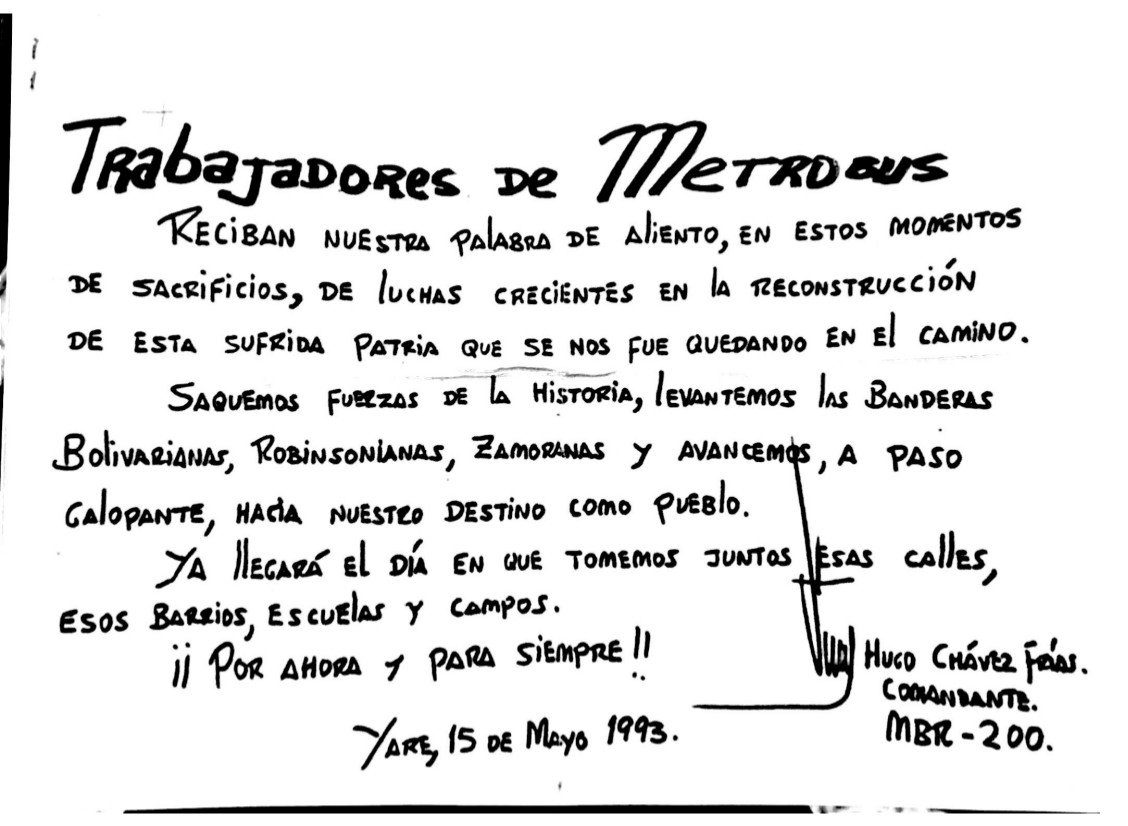 Trabajadores de Metrobus
Reciban nuestra palabra de aliento, en estos momentos
de sacrificios, de luchas crecientes en la reconstrucción
de esta sufrida patria que se nos fue quedando en el camino.
Saquemos fuerzas de la Historia, levantemos las Banderas
Bolivarianas, Robinsonianas, Zamoranas y avancemos, a paso
galopante, hacia nuestro destino como pueblo.
Ya llegará el día en que tomemos juntos esas calles,
esos Barrios, Escuelas y campos.
¡¡ Por ahora y para siempre !!
Hugo Chávez Frías.
Comandante.
MBR-200.
Yare, 15 de Mayo 1993.